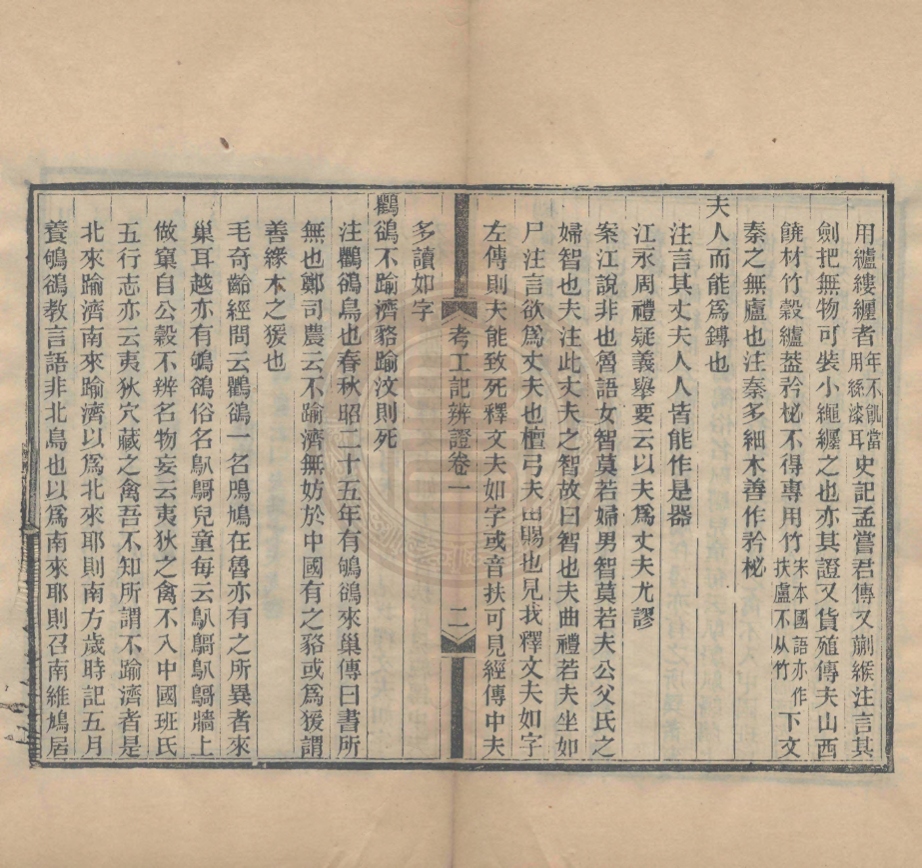 用纑縷纏者年不飢當用絲漆耳史記孟嘗君傳又蒯緱注言其
劍把無物可裝小繩纏之也亦其證又貨殖傳夫山西
饒材竹穀纑葢矜柲不得專用竹宋本國語亦作扶盧不从竹下文
秦之無廬也注秦多細木善作矜柲
夫人而能爲鎛也
注言其丈夫人人皆能作是器
江永周禮疑義舉要云以夫爲丈夫尤謬
案江說非也魯語女智莫若婦男智莫若夫公父氏之
婦智也夫注此丈夫之智故曰智也夫曲禮若夫坐如
尸注言欲爲丈夫也檀弓夫由賜也見我釋文夫如字
左傳則夫能致死釋文夫如字或音扶可見經傳中夫
考工記辨證卷一 二
多讀如字
鸜鵒不踰濟貉踰汶則死
注鸜鵒鳥也春秋昭二十五年有鴝鵒來巢傳曰書所
無也鄭司農云不踰濟無妨於中國有之貉或爲猨謂
善緣木之猨也
毛奇齡經問云鸜鵒一名鳲鳩在魯亦有之所異者來
巢耳越亦有鴝鵒俗名䳊鷵兒童每云䳊鷵䳊鷵牆上
做窠自公穀不辨名物妄云夷狄之禽不入中國班氏
五行志亦云夷狄穴藏之禽吾不知所謂不踰濟者是
北來踰濟南來踰濟以爲北來耶則南方歲時記五月
養鴝鵒教言語非北鳥也以爲南來耶則召南維鳩居